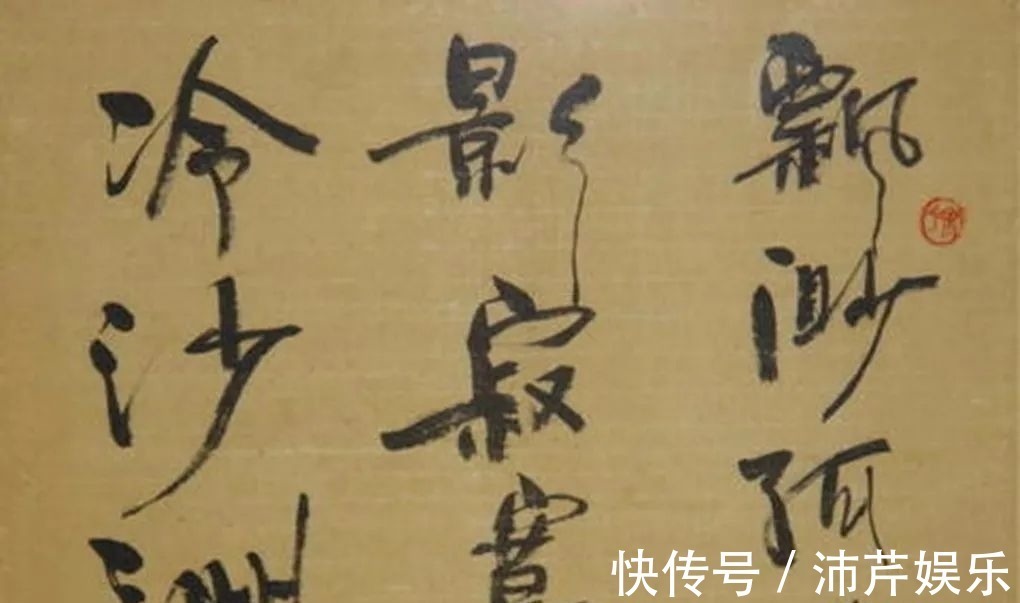 飘渺孤
影寂寞
冷沙洲
快传号 / 沛芹娱乐